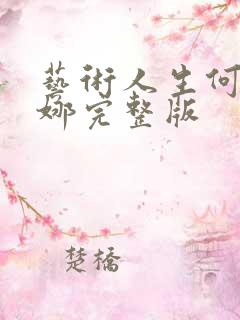 藝術人生何
娜完整版
楚橋